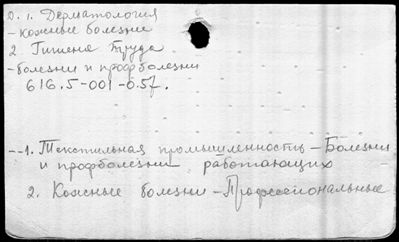 0. 1. Дерматология
- кожные болезни
2. Гигиена труда
- болезни и профболезни
616.5-001-057.
--1. Текстильная промышленность - Болезни
и профболезни работающих
2. Кожные болезни - Профессиональные